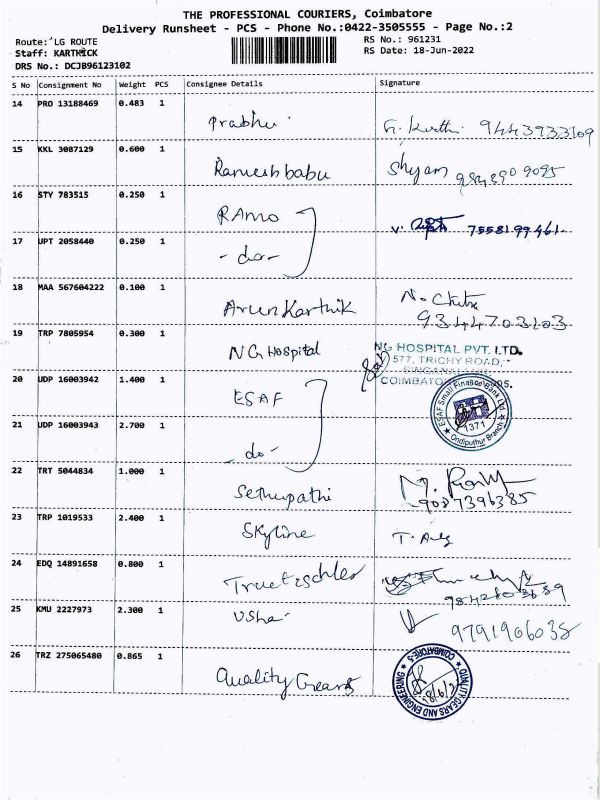 THE PROFESSIONAL COURIERS, Coimbatore
Delivery Runsheet - PCS - Phone No.:0422-3505555 - Page No.:2
Route: LG ROUTE
RS No.: 961231
Staff: KARTHICK
RS Date: 18-Jun-2022
DRS No.: DCJB96123102
S No Consignment No Weight PCS Consignee Details Signature
14 PRO 13188469 0.483 1
Prabhu G. Karthi 9443933109
15 KKL 3087129 0.600 1
Rameshbabu Shyam 9843909095
16 STY 783515 0.250 1
RAmo V. 7558199461
17 UPT 2058440 0.250 1
- do -
18 MAA 567604222 0.100 1
Arun Karthik N. Chitra
9344703203
19 TRP 7805954 0.300 1
NG Hospital NG HOSPITAL PVT. LTD.
577, TRICHY ROAD,
20 UDP 16003942 1.400 1
COIMBATO 005.
ESAF ESAF Small Finance Bank Ltd.
1371
Ondiputhur Branch
21 UDP 16003943 2.700 1
- do -
22 TRT 5044834 1.000 1
Sethupathi 9087396385
23 TRP 1019533 2.400 1
Skyline
24 EDQ 14891658 0.800 1
Truetzschler
25 KMU 2227973 2.300 1
Usha 9791906038
26 TRZ 275065480 0.865 1
Quality Gears QUALITY GEARS AND ENGINEERING
COIMBATORE-5
18/6/2